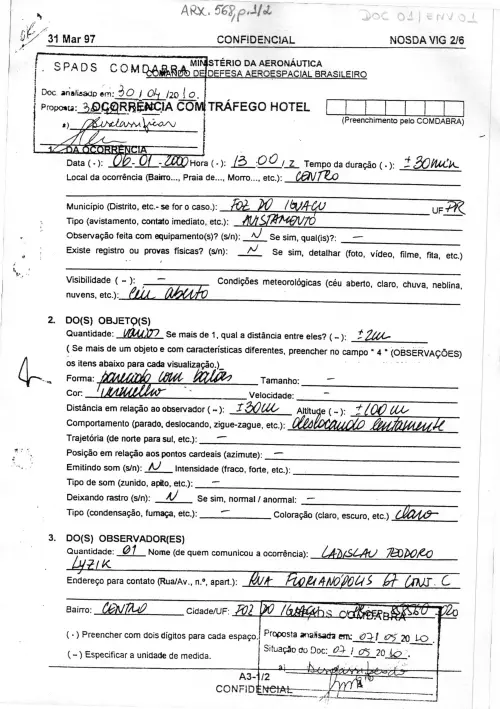 ARX. 568, p.1/2
DOC 01/ENV 01
31 Mar 97 CONFIDENCIAL NOSDA VIG 2/6
SPADS COMDABRA
MINISTÉRIO DA AERONÁUTICA
COMANDO DE DEFESA AEROESPACIAL BRASILEIRO
Doc analisado em: 30/04/2010.
Proposta:
OCORRÊNCIA COM TRÁFEGO HOTEL
(Preenchimento pelo COMDABRA)
a) Desclassificar
1. DA OCORRÊNCIA
Data ( · ): 06-01-2000 Hora ( · ): 13:00 / Z Tempo da duração ( · ): ± 30 min
Local da ocorrência (Bairro..., Praia de..., Morro..., etc.): CENTRO
Município (Distrito, etc.- se for o caso.): FOZ DO IGUAÇU UF PR
Tipo (avistamento, contato imediato, etc.): AVISTAMENTO
Observação feita com equipamento(s)? (s/n): N Se sim, qual(is)?: —
Existe registro ou provas físicas? (s/n): N Se sim, detalhar (foto, vídeo, filme, fita, etc.)
Visibilidade ( ~ ): — Condições meteorológicas (céu aberto, claro, chuva, neblina,
nuvens, etc.): céu aberto
2. DO(S) OBJETO(S)
Quantidade: vários Se mais de 1, qual a distância entre eles? ( ~ ): ± 2m
( Se mais de um objeto e com características diferentes, preencher no campo " 4 " (OBSERVAÇÕES)
os itens abaixo para cada visualização.)
Forma: parecido com balões Tamanho: —
Cor: vermelho Velocidade: —
Distância em relação ao observador ( ~ ): ± 30m Altitude ( ~ ): ± 100 m
Comportamento (parado, deslocando, zigue-zague, etc.): deslocando lentamente
Trajetória (de norte para sul, etc.): —
Posição em relação aos pontos cardeais (azimute): —
Emitindo som (s/n): N Intensidade (fraco, forte, etc.):
Tipo de som (zunido, apito, etc.): —
Deixando rastro (s/n): N Se sim, normal / anormal: —
Tipo (condensação, fumaça, etc.): — Coloração (claro, escuro, etc.) claro
3. DO(S) OBSERVADOR(ES)
Quantidade: 01 Nome (de quem comunicou a ocorrência): LADISLAU TEODORO
LYZIK
Endereço para contato (Rua/Av., n.º, apart.): RUA FLORIANÓPOLIS 67 CONJ. C
Bairro: CENTRO Cidade/UF: FOZ DO IGUAÇU
SPADS COMDABRA
( · ) Preencher com dois dígitos para cada espaço.
Proposta analisada em: 07/05/2010
( ~ ) Especificar a unidade de medida.
Situação do Doc: 07/05/2010.
a) Desclassificado
A3-1/2
CONFIDENCIAL